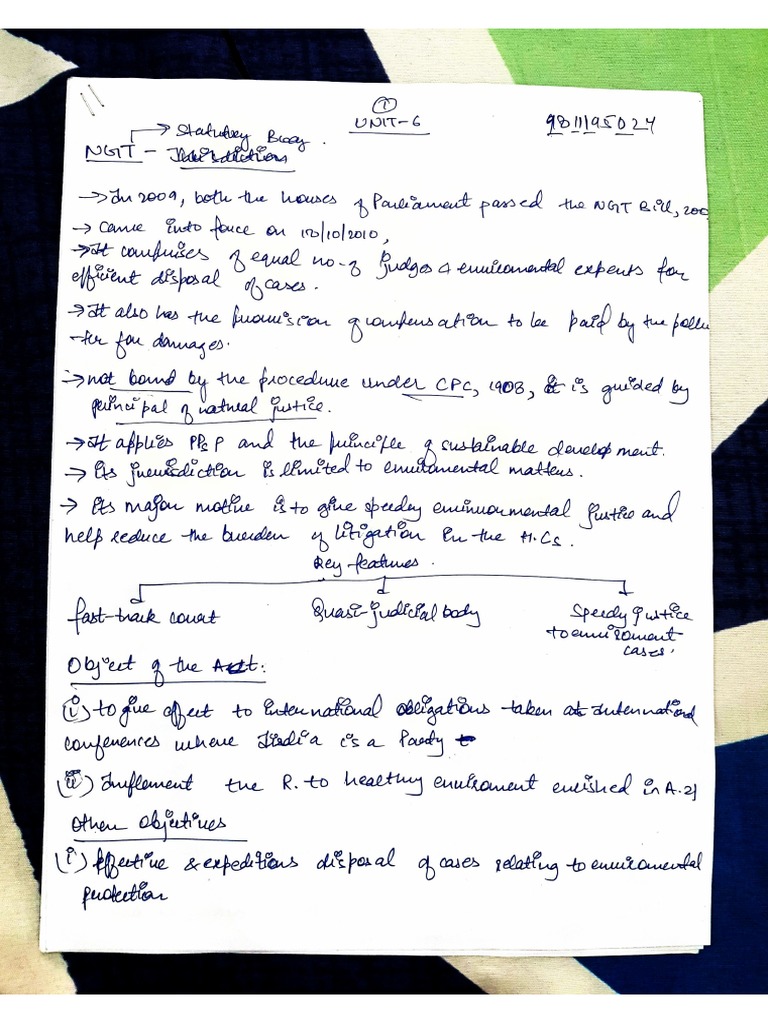 ①
UNIT-6
9811195024
→ Statutory Body.
NGT - Jurisdiction
→ In 2009, both the houses of Parliament passed the NGT Bill, 200
→ Came into force on 18/10/2010,
→ It comprises of equal no. of Judges & enviromental experts for
efficient disposal of cases.
→ It also has the provision of compensation to be paid by the pollu
-ter for damages.
→ not bound by the procedure under CPC, 1908, it is guided by
principal of natural justice.
→ It applies PPsP and the principle of sustainable development.
→ Its jurisdiction is limited to enviromental matters.
→ Its major motive is to give speedy environmental justice and
help reduce the burden of litigation in the H.Cs.
Key features.
fast-track court
Quasi-judicial body
Speedy justice
to enviroment
cases.
Object of the Act:
(i) to give effect to international obligations taken at International
conferences where India is a Party
(ii) Implement the R. to healthy enviroment enrished in A.21
Other Objectives
(i) Effective & expeditions disposal of cases relating to enviromental
protection